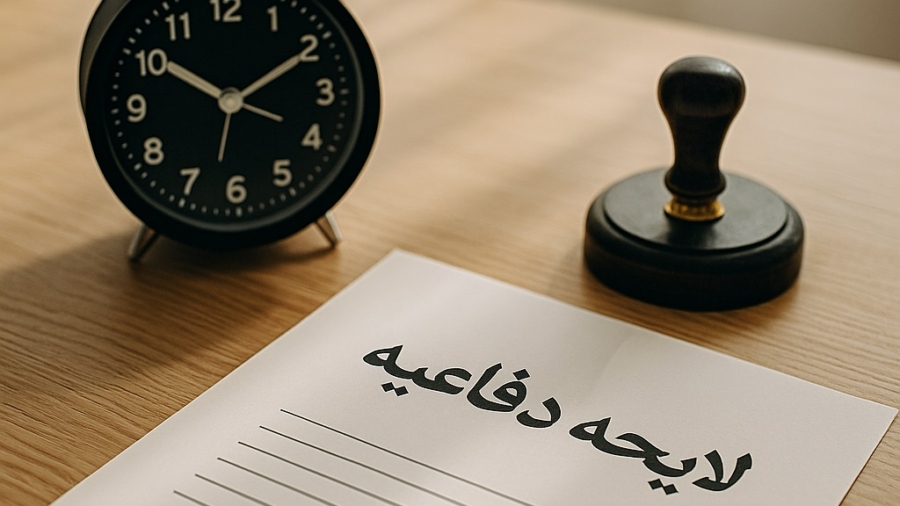 12
1
2
3
4
5
6
7
8
9
10
11
لایحه دفاعیه